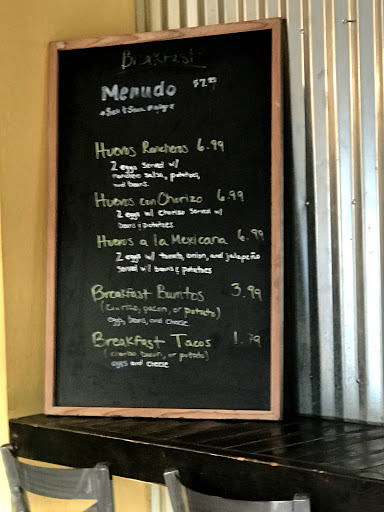 Breakfast
Menudo $7.99
Huevos Rancheros 6.99
2 eggs served w/
ranchero salsa, potatoes,
and beans
Huevos con Chorizo 6.99
2 eggs w/ chorizo served w/
beans & potatoes
Huevos a la Mexicana 6.99
2 eggs w/ tomato, onion, and jalapeño
served w/ beans & potatoes
Breakfast Burritos 3.99
(chorizo, bacon, or potato)
eggs, beans, and cheese
Breakfast Tacos 1.79
(chorizo, bacon, or potato)
eggs and cheese